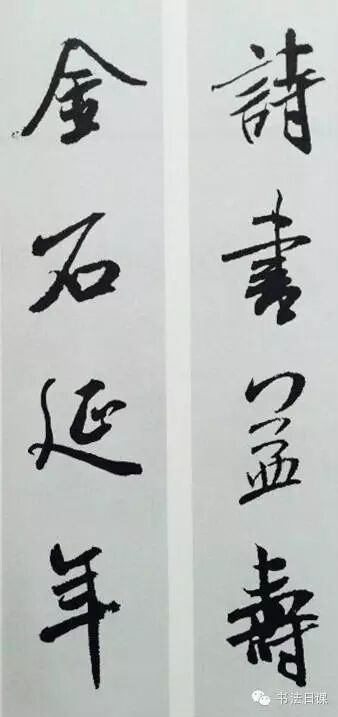 詩書益壽
金石延年
书法日课